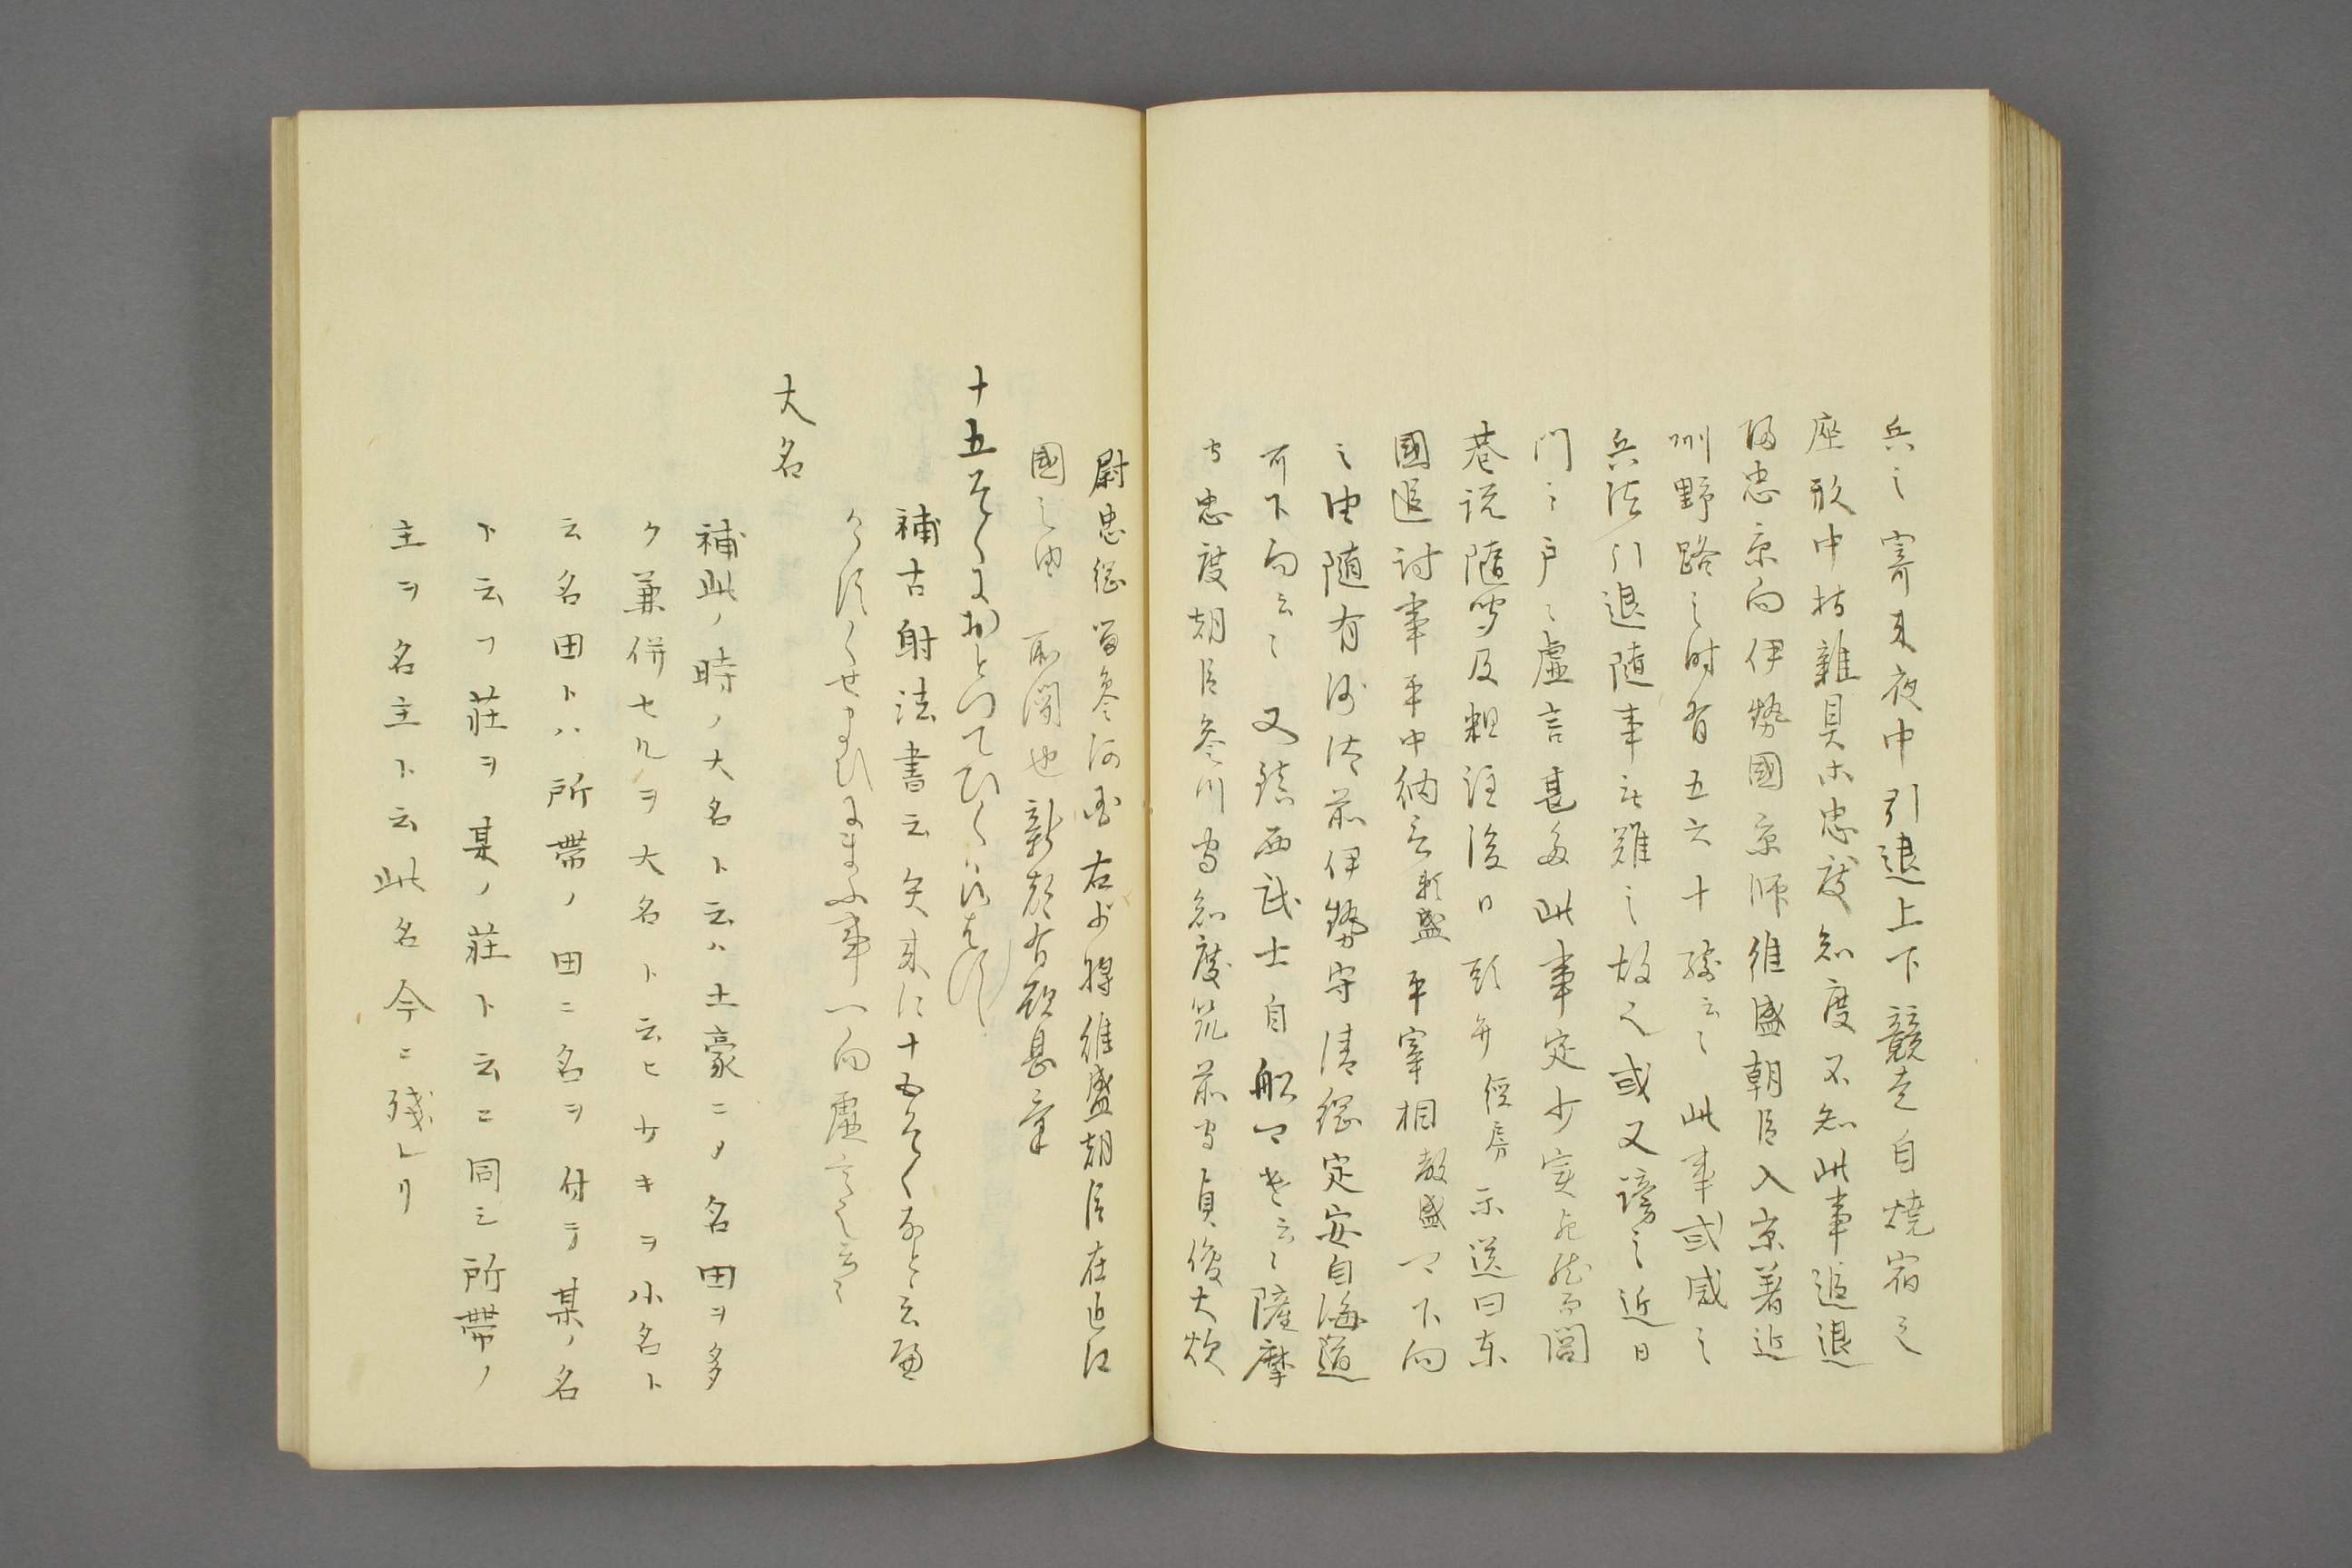 兵之寄来夜中引退上下競走自焼宿之
座形中持雑具等忠度知度不知此事追退
帰忠京向伊勢國京師維盛朝臣入京著近
州野路之時有五六十騎云々此事或感之
兵法引退随事無難之故也或又謗之近日
門々戸々虚言甚多此事定少実
巷説随聞及粗注後日頭弁経房示送曰東
國追討事平中納言頼盛平宰相教盛可下向
之由随有沙汰前伊勢守清綱定安自海道
可下向云々又鎮西武士自船可 云々薩摩
守忠度朝臣参川守知度筑前守貞俊大炊
尉忠綱留参河国右少将維盛朝臣在近江
國之由所聞也新都有歓甚幸
十五そくにおとつてひくは候はす
補古射法書云矢束に十五そくなと云
事一向虚言也云々
大名
補此ノ時ノ大名ト云ハ土豪ニノ名田ヲ多
ク兼併セルヲ大名ト云ヒ少キヲ小名ト
云名田トハ所帯ノ田ニ名ヲ付テ某ノ名
ト云フ荘ヲ某ノ荘ト云ニ同シ所帯ノ
主ヲ名主ト云此名今ニ残レリ